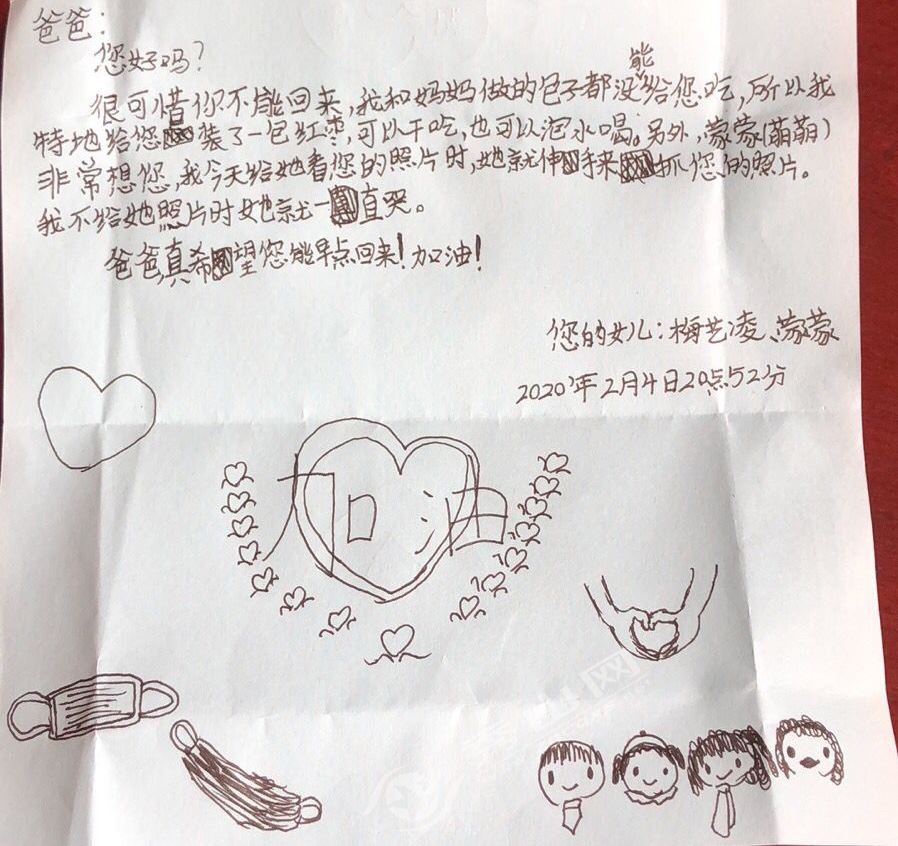 爸爸:
您好吗?
很可惜你不能回来,我和妈妈做的包子都没能给您吃,所以我
特地给您装了一包红枣,可以干吃,也可以泡水喝。另外,蒙蒙(萌萌)
非常想您,我今天给她看您的照片时,她就伸手来抓您的照片。
我不给她照片时她就一直哭。
爸爸,真希望您能早点回来!加油!
您的女儿:梅艺凌、蒙蒙
2020年2月4日20点52分
加油